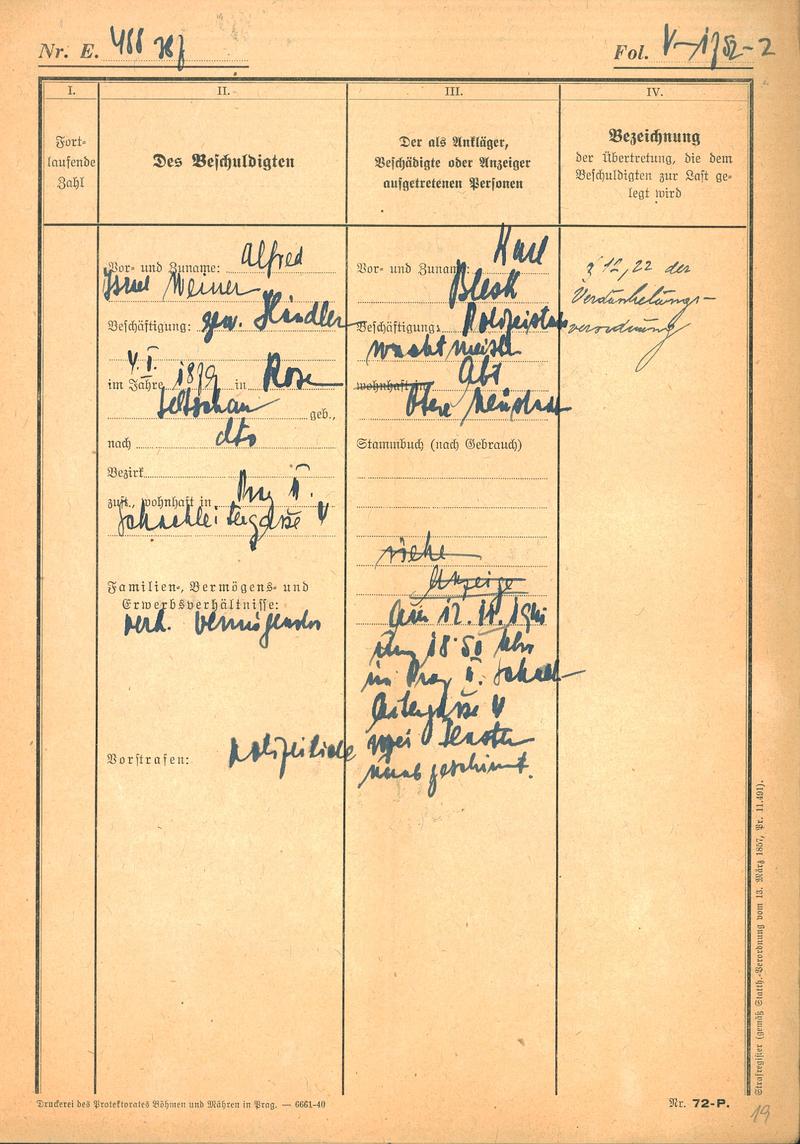 Nr. E. 488
Fol. V-1752-2
I.
Fort-
laufende
Zahl
II.
Des Beschuldigten
III.
Der als Ankläger,
Beschädigte oder Anzeiger
aufgetretenen Personen
IV.
Bezeichnung
der Übertretung, die dem
Beschuldigten zur Last ge-
legt wird
Vor- und Zuname: Alfred
Israel Werner
Beschäftigung: gew. Händler
4. I.
im Jahre 1879 in Rose
Seltschan geb.,
nach dto
Bezirk
zust., wohnhaft in Prag II.
Schachleitergasse V
Familien-, Vermögens- und
Erwerbsverhältnisse:
verh.
Vorstrafen:
Vor- und Zuname: Karl
Blesk
Beschäftigung: Polizeistabs
wachtmeister
wohnhaft in Abt
Obere Neustadt
Stammbuch (nach Gebrauch)
siehe
Anzeige
Am 12. 11. 1941
um 18.50 Uhr
in Prag II. Schach-
leitergasse V
zwei Fenster
§ 12, 22 der
Verdunkelungs-
verordnung
Druckerei des Protektorates Böhmen und Mähren in Prag. — 6661-40
Nr. 72-P.
Strafregister (gemäß Statth.-Verordnung vom 13. März 1857, Pr. 11.491).
19